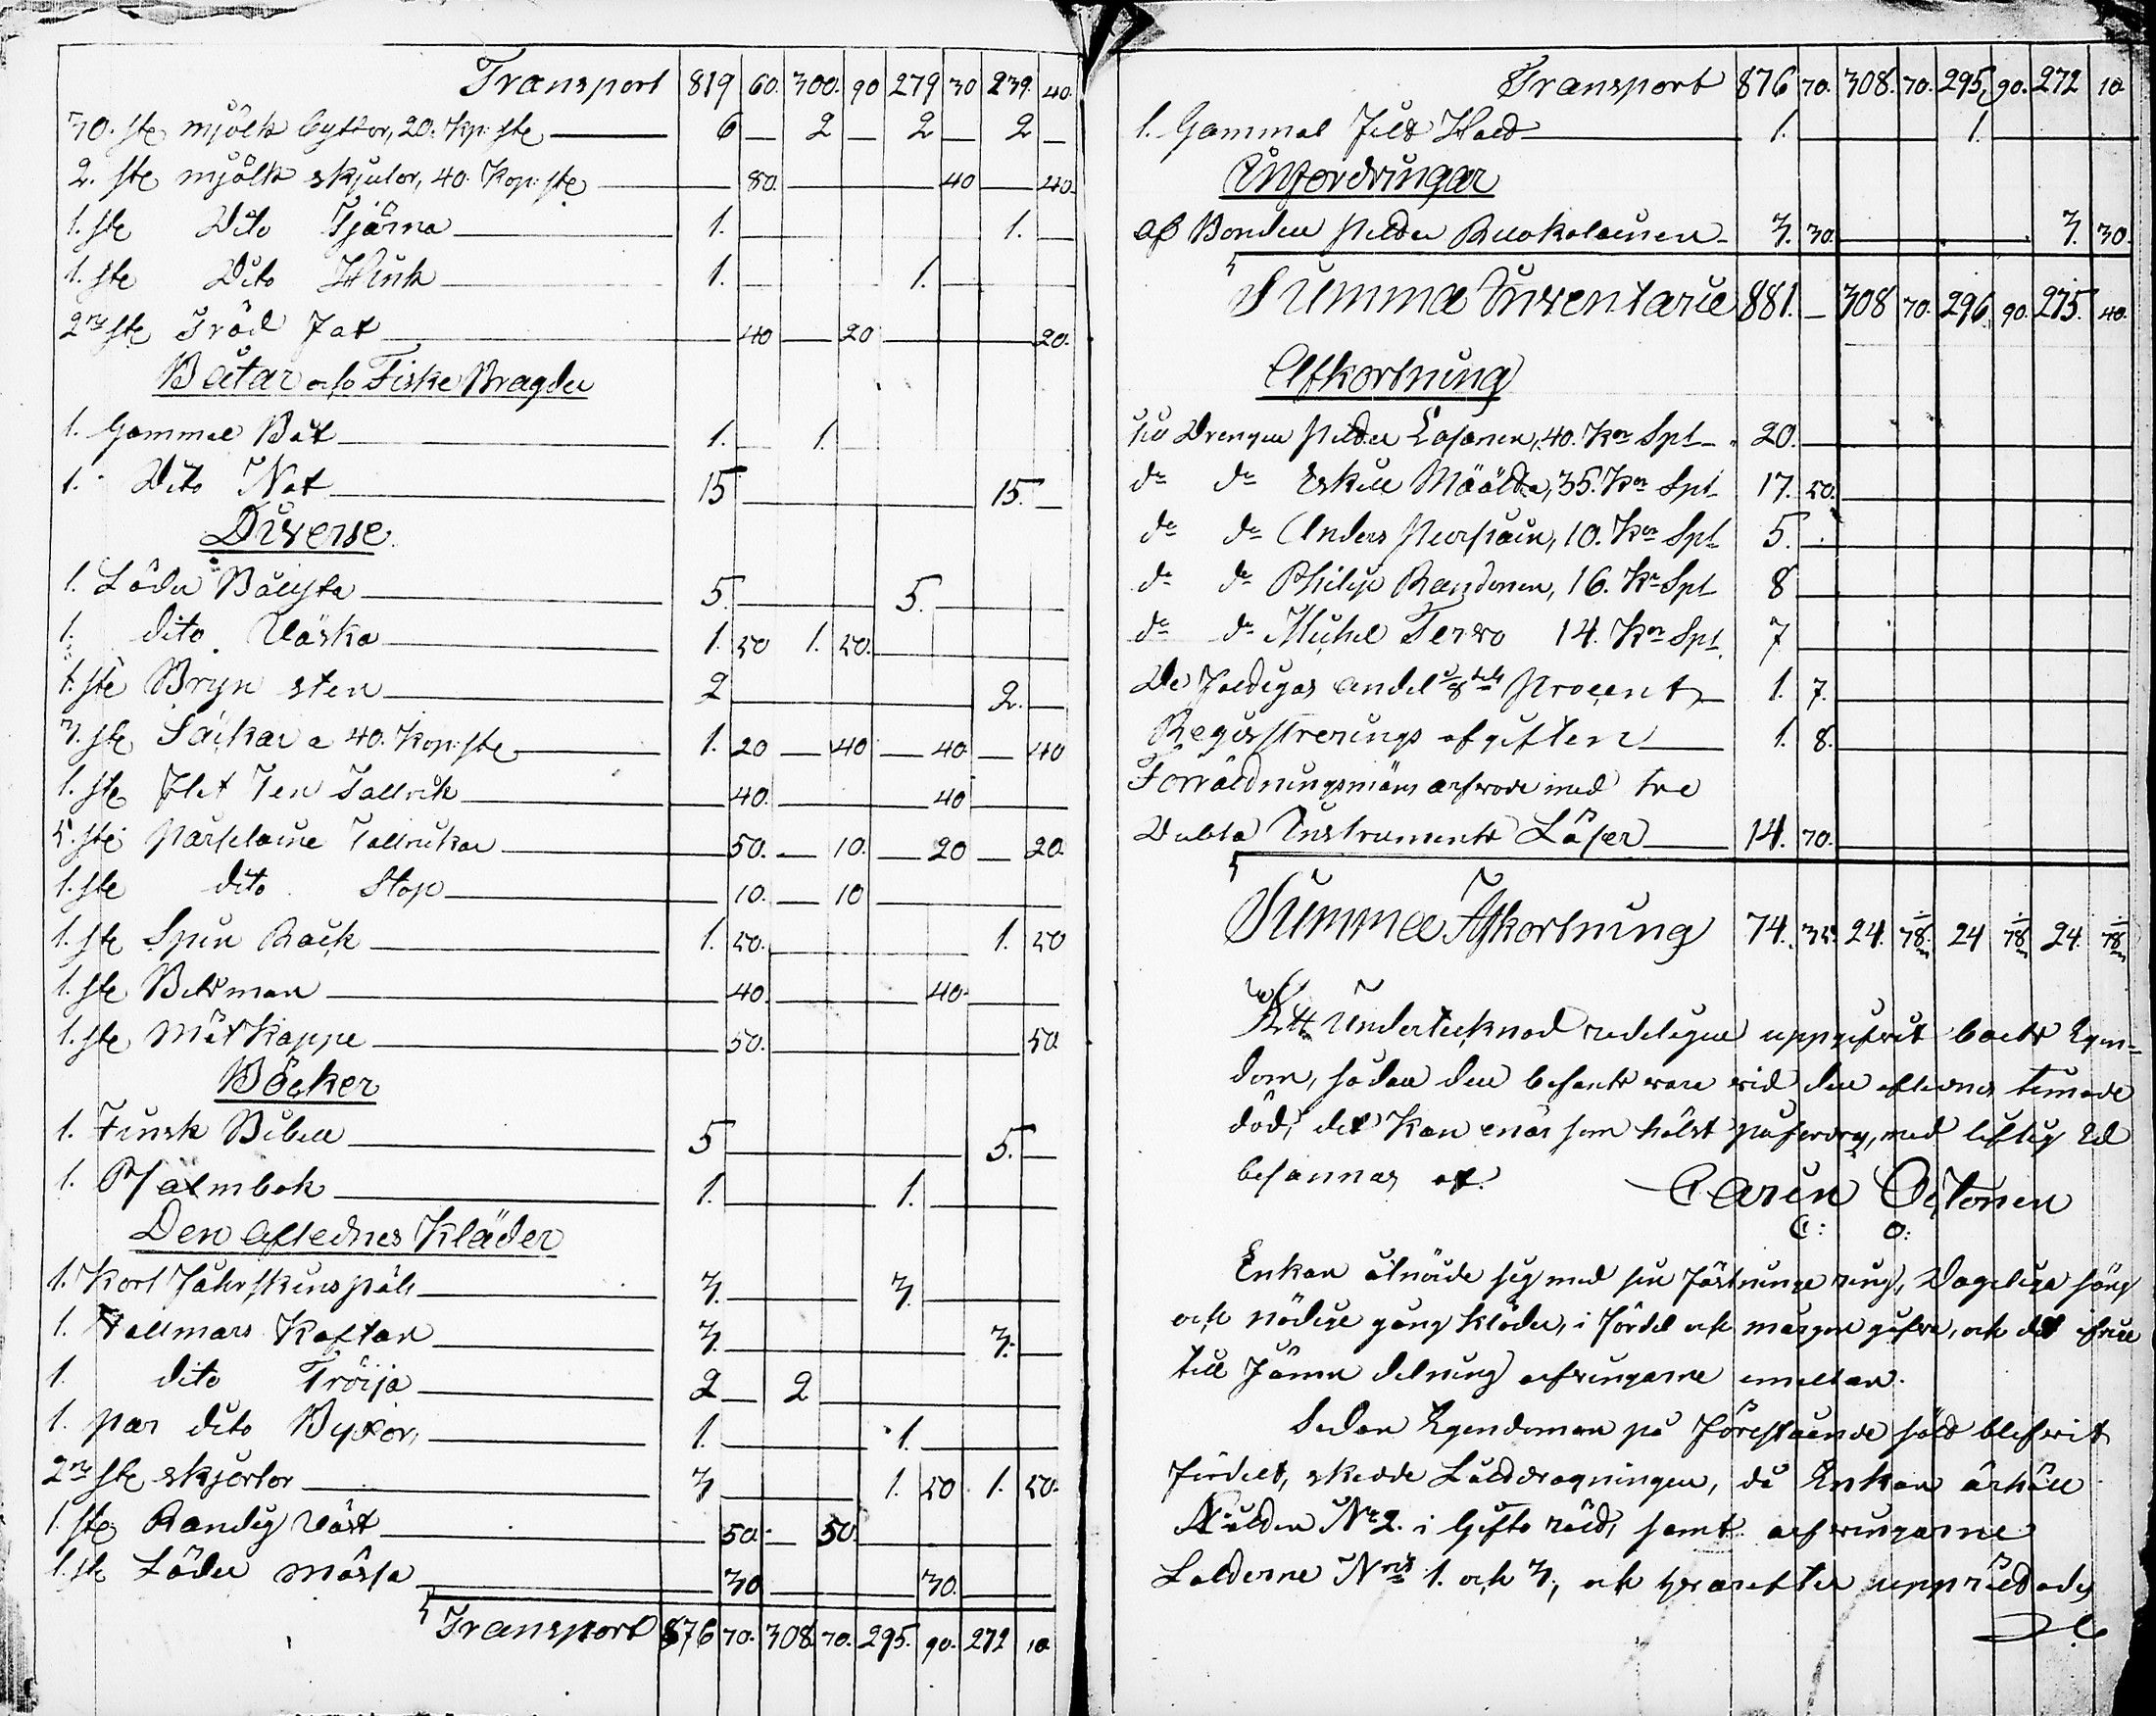 Transport 819 60. 300. 90 279 30 239. 40.
30. ste mjölk byttor, 20. Kp: ste 6 2 2 2
2. ste mjölk skjulor, 40. Kop: ste 80. 40 40.
1. ste Dito Tjärna 1. 1.
1. ste Dito 1. 1.
2ne ste Träd Fat 40 20 20.
Båtar och Fiske Bragder
1. Gammal Båt 1. 1.
1. Dito Not 15 15.
Diverse.
1. Läder 5. 5.
1. dito Väska 1. 50 1. 50.
1. ste Bryn sten 2 2.
3. ste Säckar a 40. Kop: ste 1. 20 40 40 40
1. ste Flat Ten Tallrik 40. 40
5. ste Parslaine Tallrikar 50. 10. 20 20.
1. ste dito Stop 10. 10
1. ste Spin Rock 1. 50. 1. 50
1. ste Betsman 40. 40.
1. ste Mät Kappe 50. 50
Böcker
1. Finsk Bibell 5 5.
1. Psalmbok 1. 1.
Den Aflednes Kläder
1. Kort Fåhrskinspäls 3. 3.
1. Vallmars Kaftan 3. 3.
1. dito Tröija 2 2
1. par dito Byxor, 1. 1.
2ne ste skjortor 3 1. 50 1. 50.
1. ste Randig Väst 50. 50
1. ste Läder mössa 30 30.
Transport 876 70. 308. 70. 295. 90. 272 10
Transport 876 70. 308. 70. 295. 90. 272 10
1. Gammal 1. 1.
Utfordringar
af Bonden Peder Ruokolainen 3. 30. 3. 30.
Summa Inventarie 881. 308 70. 296. 90. 275. 40.
Afkortning
till Drengen Peder Lasanen, 40. Kr Spl 20.
do do Eskill Määttä, 35. Kr Spl 17. 50.
do do Anders 10. Kr Spl 5.
do do Philip 16. Kr Spl 8
do do Michel Tervo 14. Kr Spl 7
De Fattigas andel 1/8 dels Procent 1. 7.
Registrerings afgiften 1. 8.
Förrättningsmäns arfvode med tre
Dubla Instruments Löser 14. 70.
Summa Afkortning 74. 35. 24. 78. 24 78 24. 78
Att Undertecknad redeligen uppgifvit boets Egen-
dom, sådan den befants vara vid den aflednes timade
död, det Kan enär som hälst påfordras, med liflig Ed
besannas af. Carin Oetonen
C: O:
Enkan åtnöide sig med sin Fästninge ring, Dageliga säng
och nödige gång kläder, i Fördel och morgon gåfva, och det öfriga
till Jämn delning arfvingarne emellan.
Sedan Egendomen på Förestående sätt blefvit
fördelt, skedde Låttdragningen, då Enkan ärhöll
Låtten No 2. i Gifto rätt, samt arfvingarne
Lotterne Nris 1. och 3, och hvarefter upprättades